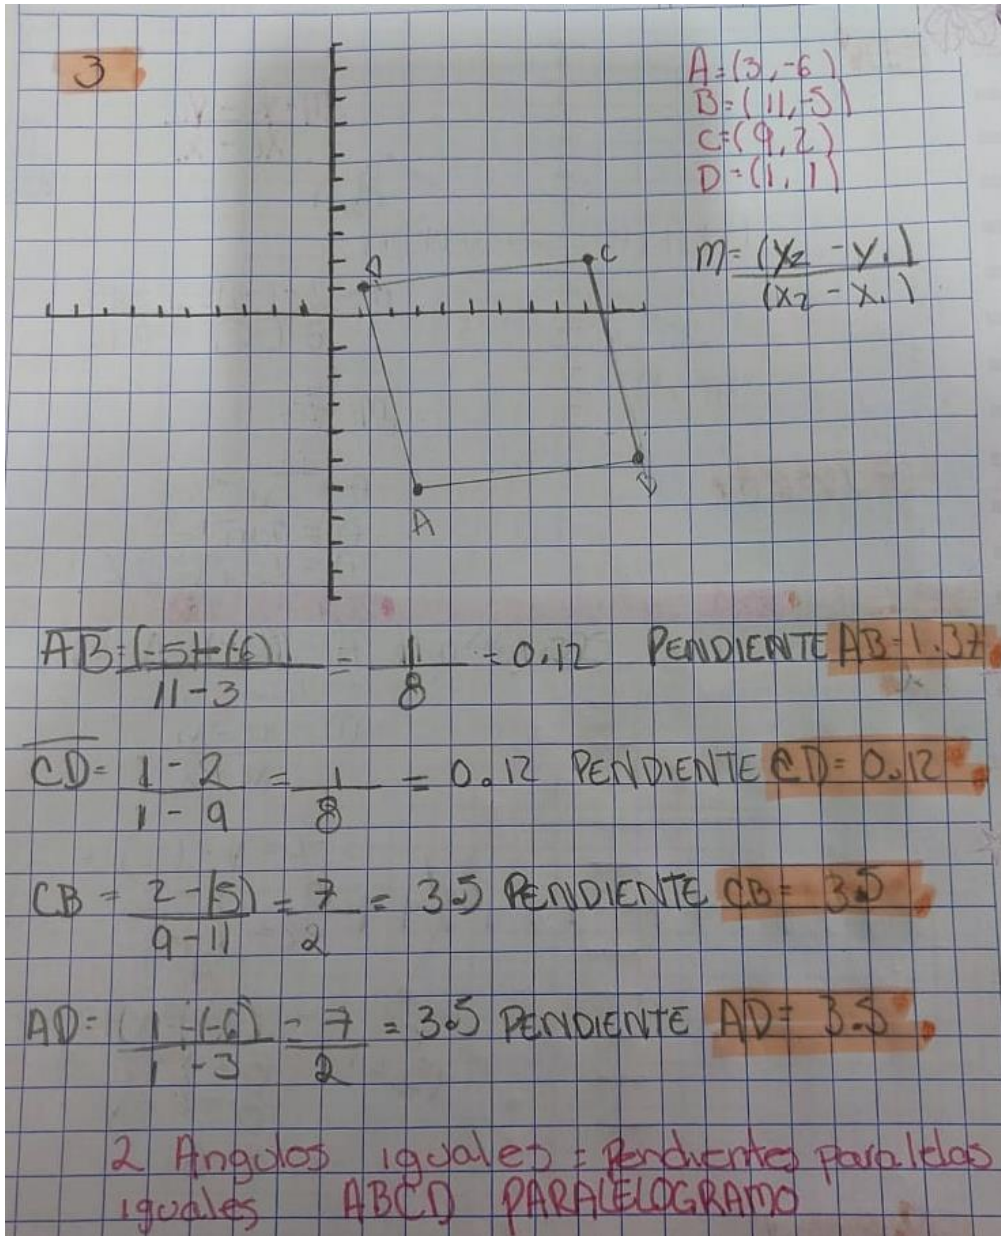 3
A=(3,-6)
B=(11,-5)
C=(9,2)
D=(1,1)
m=(y₂ - y₁)
(x₂ - x₁)
D
C
B
A
AB=(-5)-(-6) = 1 = 0.12 PENDIENTE AB=1.37
11-3 8
CD= 1-2 = 1 = 0.12 PENDIENTE CD= 0.12
1-9 8
CB = 2-(5) = 7 = 3.5 PENDIENTE CB= 3.5
9-11 2
AD= 1-(-6) = 7 = 3.5 PENDIENTE AD= 3.5
1-3 2
2 Angulos iguales = Pendientes paralelas
iguales ABCD PARALELOGRAMO